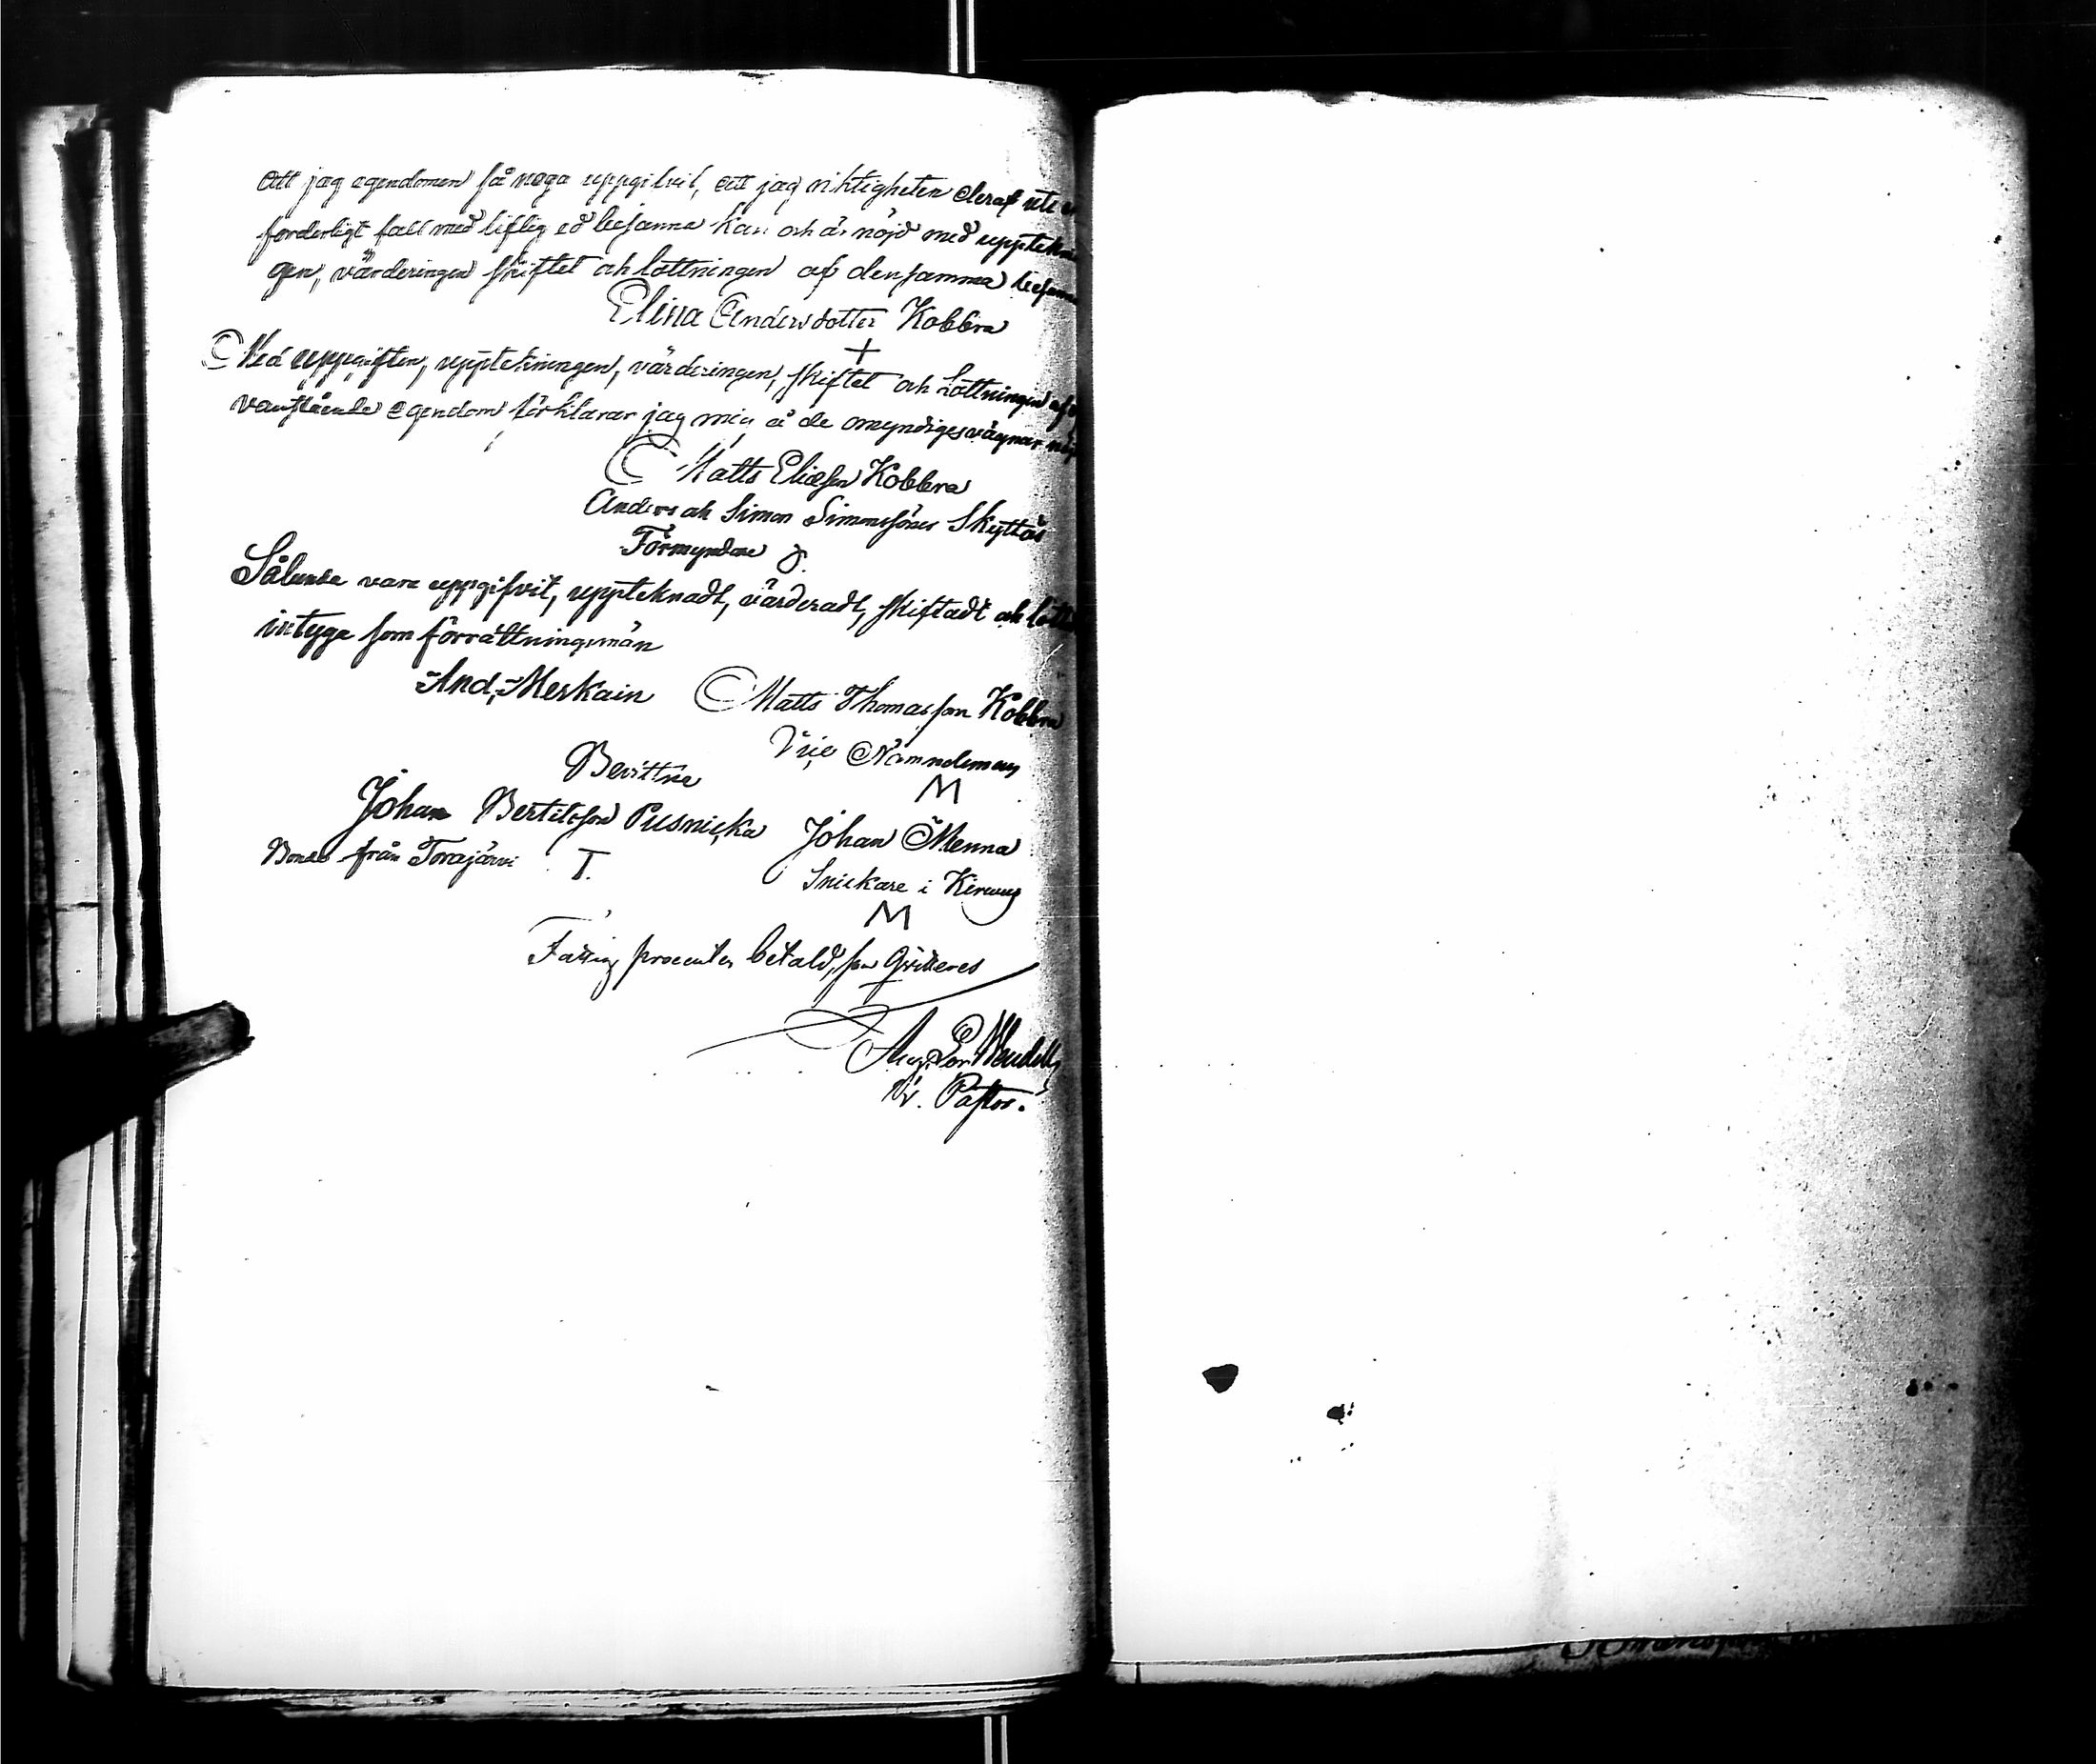 Att jag egendomen så noga uppgifvit, att jag riktigheten deraf uti
forderligt fall med liflig ed besanna kan och är nöjd med upptekni
gen, värderingen skiftet och lottningen af densamma
Elina Andersdotter Kobbra
+
Med uppgiften, uppteckningen, värderingen, skiftet och Lottningen af
vanstående egendom förklarar jag mig å de omyndigas vägnar nöjd
Matts Eliasson Kobbra
Anders och Simon Simonssöner Skyttäs
Förmyndare
Sålunda vara uppgifvit, uppteknadt, värderadt, skiftadt och
intyga som förrättningsmän
And. Meskain Matts Thomasson Kobbra
Vice Nämndeman
M
Bevittna
Johan Bertilsson Pusnicka Johan Menna
Bonde från Torajärvi T. Snickare i
M
Fattig procenten betald, som qvitteras
V. Pastor.